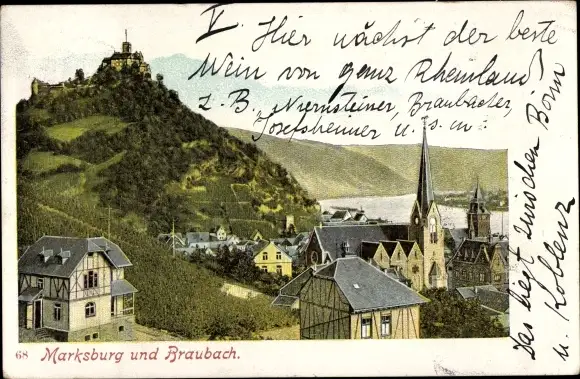 V.
Hier nächst der beste
Wein von ganz Rheinland
z. B. Niernsteiner, Braubacher,
Josefsheimer u. s. w.
Das liegt zwischen Bonn
u. Koblenz
68 Marksburg und Braubach.